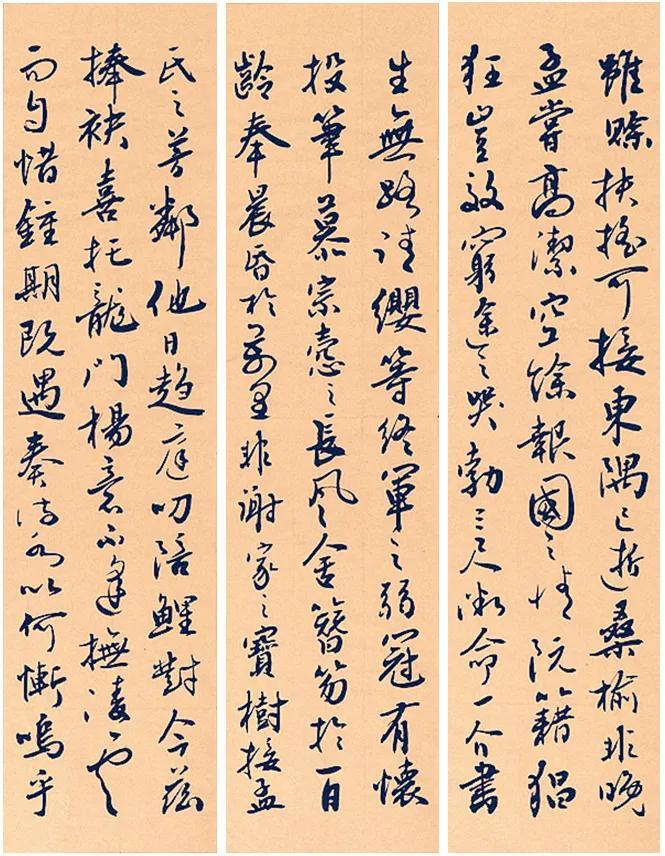 雖賒扶搖可接東隅已逝桑榆非晚
孟嘗高潔空餘報國之情阮籍猖
狂豈效窮途之哭勃三尺微命一介書
生無路請纓等終軍之弱冠有懷
投筆慕宗愨之長風舍簪笏於百
齡奉晨昏於萬里非謝家之寶樹接孟
氏之芳鄰他日趨庭叨陪鯉對今茲
捧袂喜托龍門楊意不逢撫凌雲
而自惜鍾期既遇奏流水以何慚嗚乎